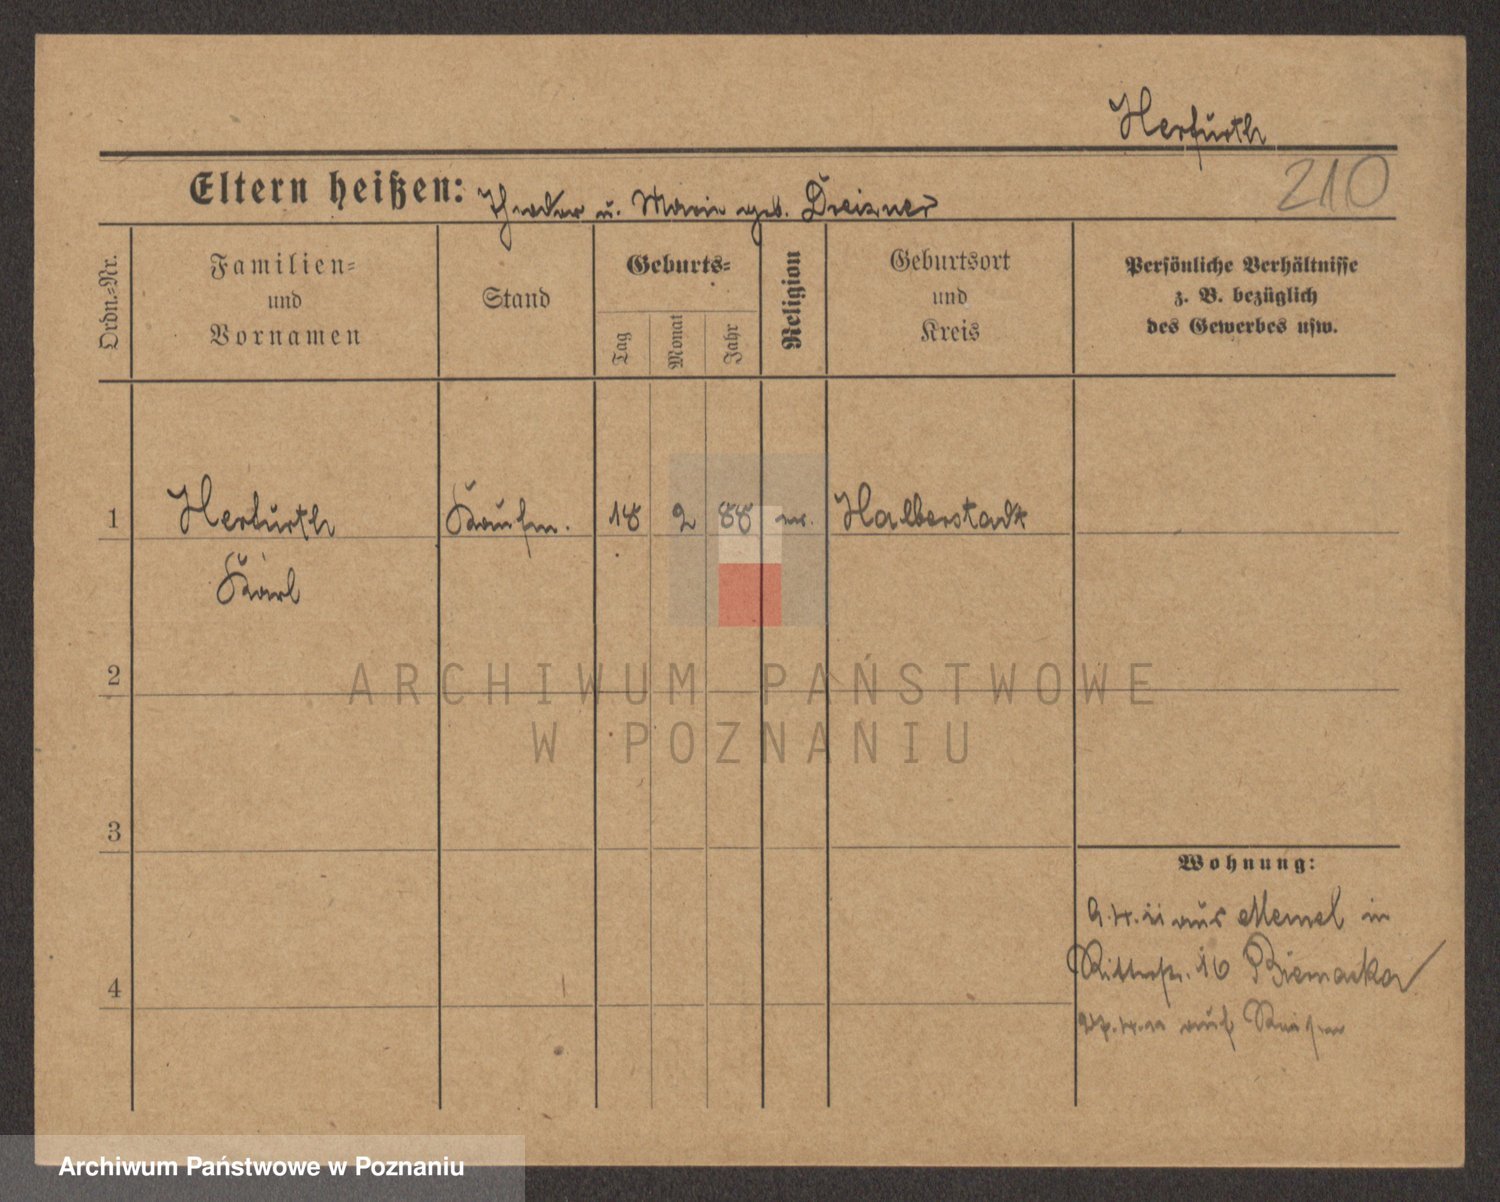 Herfurth
210
Eltern heißen: Theodor u. Marie geb. Dreizner
Ordn.-Nr.
Familien-
und
Vornamen
Stand
Geburts-
Tag
Monat
Jahr
Religion
Geburtsort
und
Kreis
Persönliche Verhältnisse
z. B. bezüglich
des Gewerbes usw.
1 Herfurth Kaufm. 18 2 88 ev. Halberstadt
Karl
2
ARCHIWUM PAŃSTWOWE
W POZNANIU
3
Wohnung:
aus Memel in
Ritterstr. 16
4
auf Reisen
Archiwum Państwowe w Poznaniu